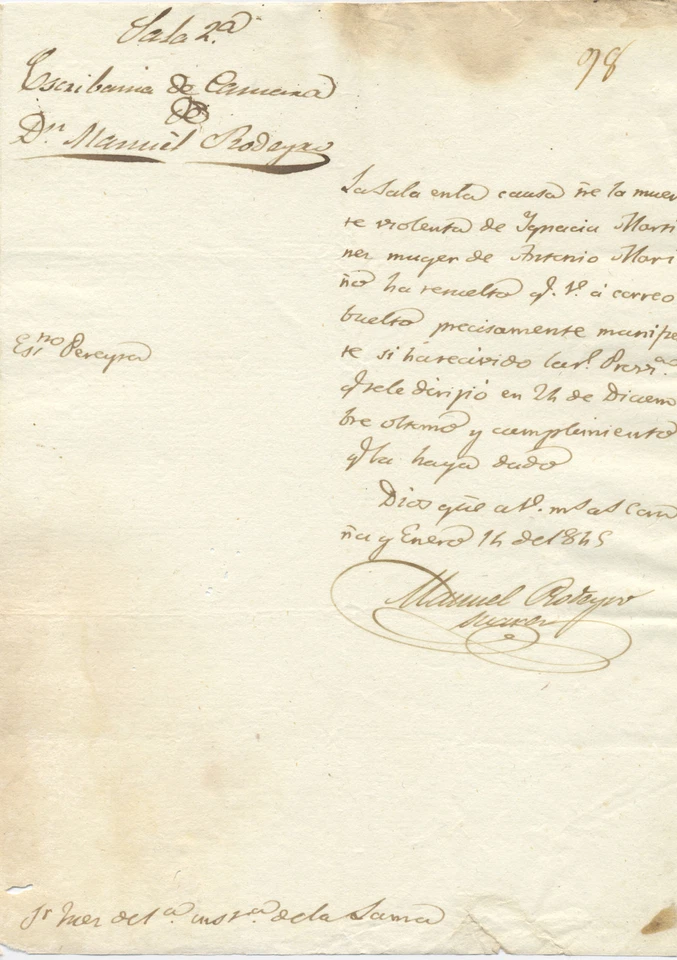 Sala 2ª
98
Escribania de Camara
de
Dn Manuel Rodeyro
La Sala enla causa sre la muer
te violenta de Ignacia Marti
nez muger de Antonio Mari
ño ha resuelto q. V. á correo
buelto precisamente manifies
te si harecivido la rl. Provon
qe sele dirijió en 24 de Diciem
bre ultimo y cumplimiento
q. la haya dado
Esno Pereyra
Dios gũe a V. ms as Coru
ña y Enero 14 de 1845
Manuel Rodeyro
Suarez
Sr Juez de 1ª insta de la